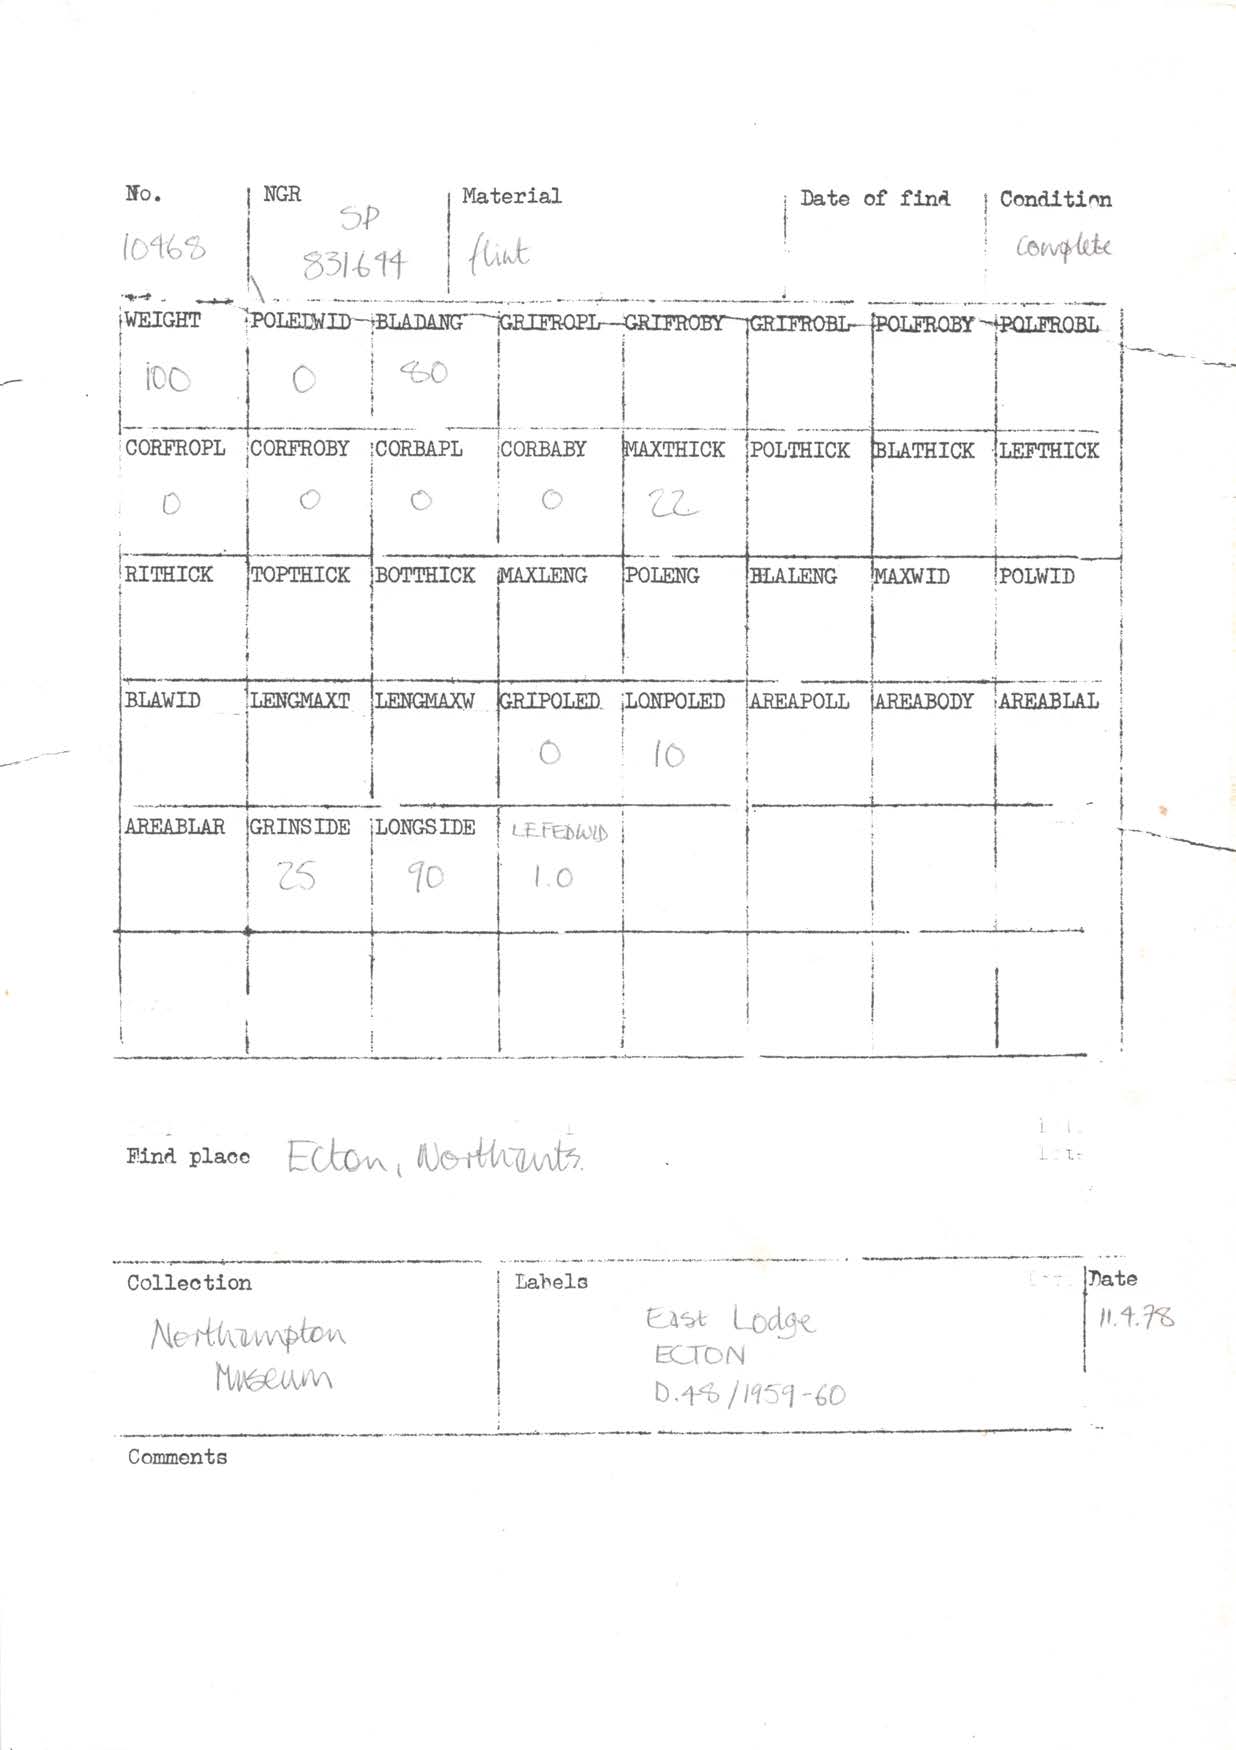 No. NGR Material Date of find Condition
SP
10468 831644 flint complete
WEIGHT POLEDWID BLADANG GRIFROPL GRIFROBY GRIFROBL POLFROBY POLFROBL
100 0 80
CORFROPL CORFROBY CORBAPL CORBABY MAXTHICK POLTHICK BLATHICK LEFTHICK
0 0 0 0 22
RITHICK TOPTHICK BOTTHICK MAXLENG POLENG BLALENG MAXWID POLWID
BLAWID LENGMAXT LENGMAXW GRIPOLED LONPOLED AREAPOLL AREABODY AREABLAL
0 10
AREABLAR GRINSIDE LONGSIDE LEFEDWID
25 90 1.0
Find place Ecton, Northants.
Collection Labels Date
Northampton East Lodge 11.4.78
Museum ECTON
D.48/1959-60
Comments